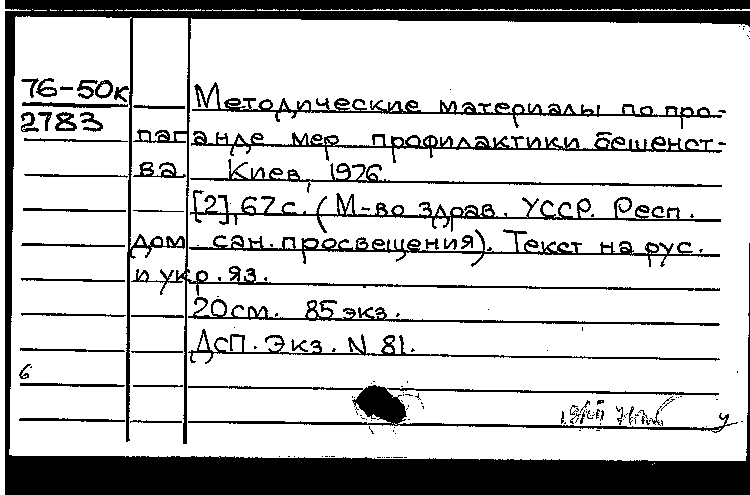 76-50к
2783
Методические материалы по про-
паганде мер профилактики бешенст-
ва. Киев, 1976.
[2], 67 с. (М-во здрав. УССР. Респ.
дом сан. просвещения). Текст на рус.
и укр. яз.
20 см. 85 экз.
ДсП. Экз. N 81.
6
у